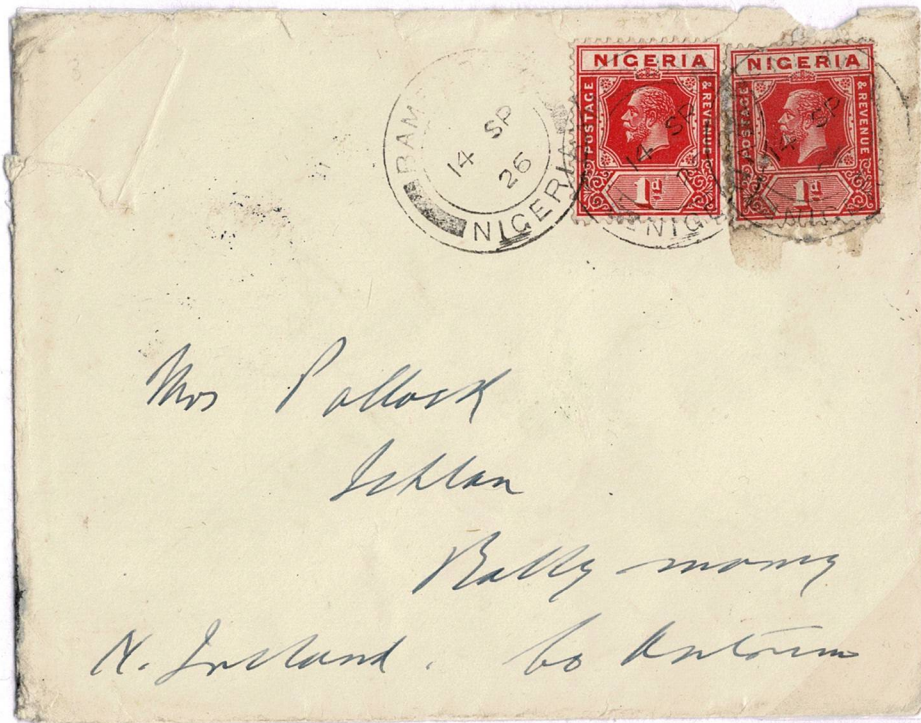 BAM
14 SP
26
NIGERIA
NIGERIA
POSTAGE & REVENUE
1d
14 SP
NIGERIA
POSTAGE & REVENUE
1d
14 SP
Mrs Pollock
Bally money
N. Ireland. Co Antrim